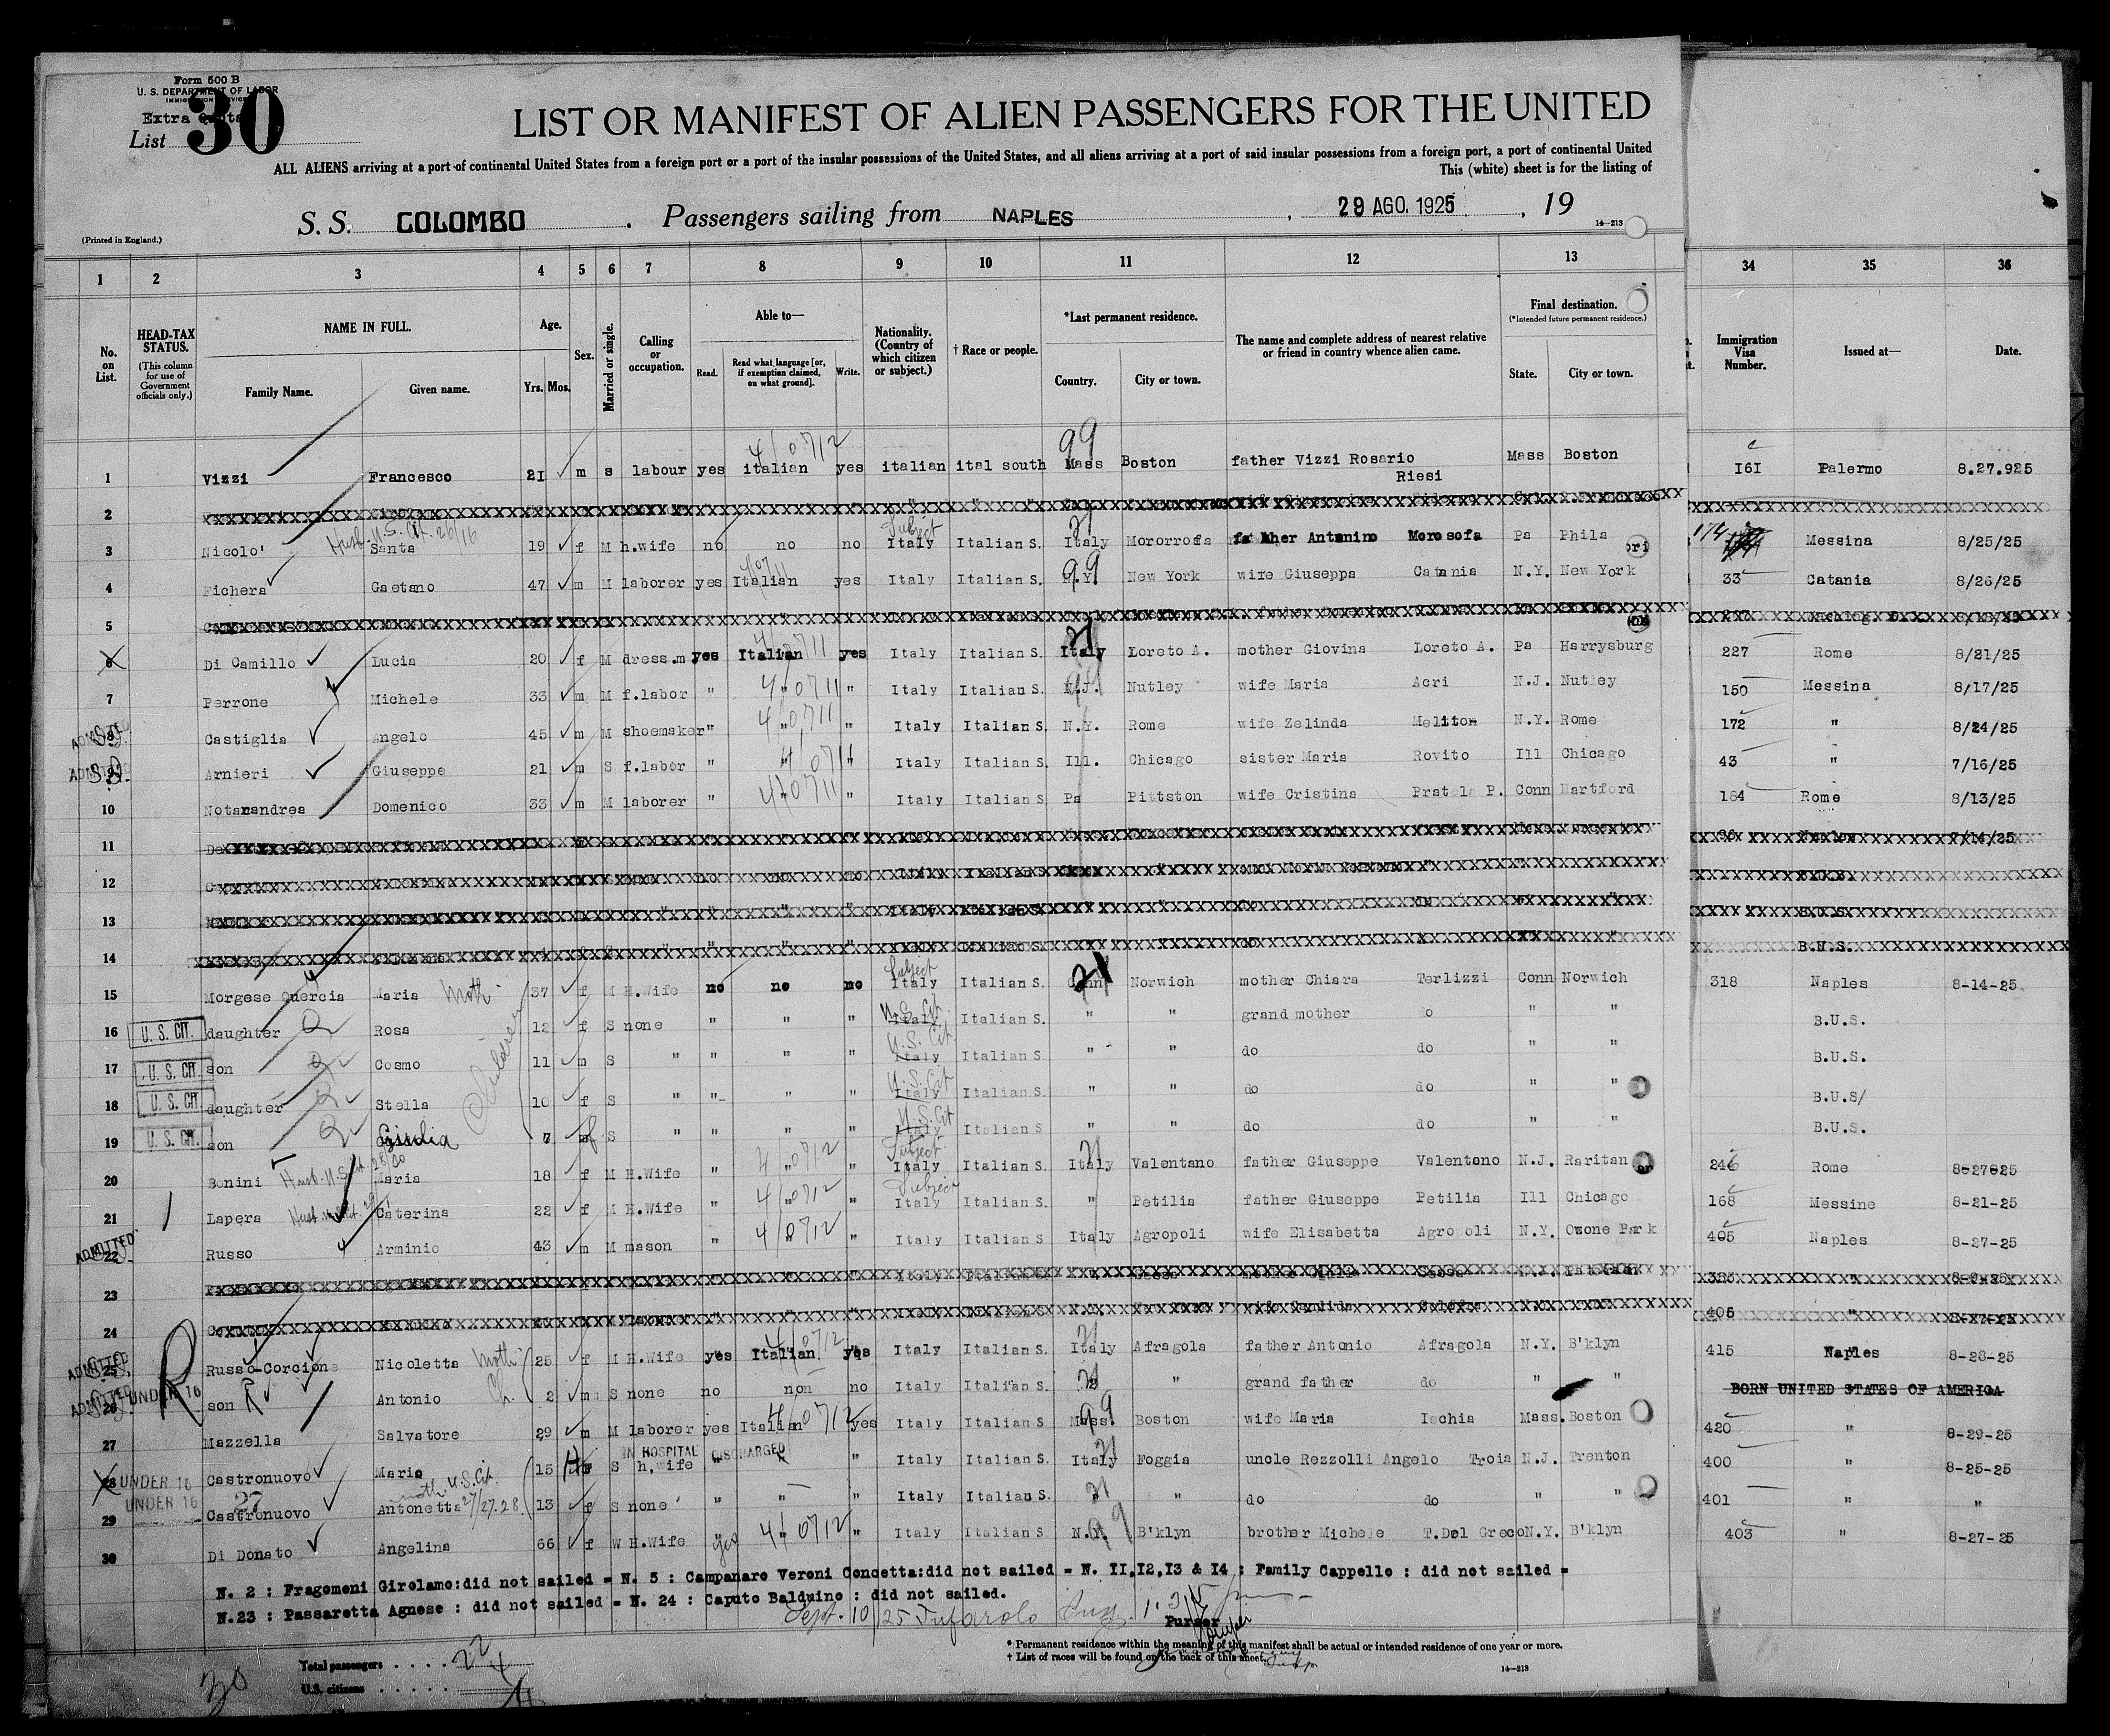 Form 500 B
U. S. DEPARTMENT OF LABOR
IMMIGRATION SERVICE
Extra Quota
List 30
LIST OR MANIFEST OF ALIEN PASSENGERS FOR THE UNITED
ALL ALIENS arriving at a port of continental United States from a foreign port or a port of the insular possessions of the United States, and all aliens arriving at a port of said insular possessions from a foreign port, a port of continental United
This (white) sheet is for the listing of
S. S. COLOMBO . Passengers sailing from NAPLES , 29 AGO. 1925 , 19
(Printed in England.) 14—213
1 2 3 4 5 6 7 8 9 10 11 12 13 34 35 36
No. on List. HEAD-TAX STATUS. (This column for use of Government officials only.) NAME IN FULL. Family Name. Given name. Age. Yrs. Mos. Sex. Married or single. Calling or occupation. Able to— Read. Read what language [or, if exemption claimed, on what ground]. Write. Nationality. (Country of which citizen or subject.) † Race or people. *Last permanent residence. Country. City or town. The name and complete address of nearest relative or friend in country whence alien came. Final destination. (*Intended future permanent residence.) State. City or town. Immigration Visa Number. Issued at— Date.
1 Vizzi Francesco 21 m s labour yes italian yes italian ital south Mass Boston father Vizzi Rosario Riesi Mass Boston 161 Palermo 8.27.925
2
3 Nicolo' Santa Husb. U.S. Cit. 26/16 19 f M h.wife no no no Subject Italy Italian S. Italy Mororrosa father Antonino Morosofa Pa Phila 174 Messina 8/25/25
4 Fichera Gaetano 47 m M laborer yes Italian yes Italy Italian S. N.Y. New York wife Giuseppa Catania N.Y. New York 33 Catania 8/26/25
5
6 Di Camillo Lucia 20 f M dress.m yes Italian yes Italy Italian S. Italy Loreto A. mother Giovina Loreto A. Pa Harrysburg 227 Rome 8/21/25
7 Perrone Michele 33 m M f.labor " " " Italy Italian S. N.J. Nutley wife Maria Acri N.J. Nutley 150 Messina 8/17/25
ADMITTED 8 Castiglia Angelo 45 m M shoemaker " " " Italy Italian S. N.Y. Rome wife Zelinda Meliton N.Y. Rome 172 " 8/24/25
ADMITTED 9 Arnieri Giuseppe 21 m S f.labor " " " Italy Italian S. Ill. Chicago sister Maria Rovito Ill Chicago 43 " 7/16/25
10 Notarandrea Domenico 33 m M laborer " " " Italy Italian S. Pa Pittston wife Cristina Pratola P. Conn Hartford 164 Rome 8/13/25
11
12
13
14 B.U.S.
15 Morgese Quercia Maria Moth. 37 f M H.Wife no no no Subject Italy Italian S. Conn Norwich mother Chiara Terlizzi Conn Norwich 318 Naples 8-14-25
16 U. S. CIT. daughter Rosa 12 f S none " " " U.S. Cit. Italy Italian S. " " grand mother do " " B.U.S.
17 U. S. CIT. son Cosmo 11 m S " " " " U.S. Cit. Italy Italian S. " " do do " " B.U.S.
18 U. S. CIT daughter Stella Children 10 f S " " " " U.S. Cit Italy Italian S. " " do do " " B.U.S/
19 U. S. CIT. son 7 f S " " " " U.S. Cit Italy Italian S " " do do " " B.U.S.
20 Bonini Husb. U.S. Cit. Maria 18 f M H.Wife " " " Subject Italy Italian S. Italy Valentano father Giuseppe Valentono N.J. Raritan 246 Rome 8-27-25
21 Lapera Caterina 22 f M H.Wife " " " Subject Italy Italian S. " Petilia father Giuseppe Petilia Ill Chicago 168 Messine 8-21-25
ADMITTED 22 Russo Arminio 43 m M mason " " " Italy Italian S. Italy Agropoli wife Elisabetta Agropoli N.Y. Ozone Park 405 Naples 8-27-25
23
24 405 " 8-27-25
ADMITTED 25 Russo-Corcione Nicoletta Moth. 25 f M H.Wife yes Italian yes Italy Italian S. Italy Afragola father Antonio Afragola N.Y. B'klyn 415 Naples 8-28-25
ADMITTED 26 UNDER 16 son Antonio Ch. 2 m S none no non no Italy Italian S. " " grand father do " " BORN UNITED STATES OF AMERICA
27 Mazzella Salvatore 29 m M laborer yes Italian yes Italy Italian S. Mass. Boston wife Maria Ischia Mass. Boston 420 " 8-29-25
28 UNDER 16 Castronuovo Maria 15 f S h.wife IN HOSPITAL DISCHARGED " Italy Italian S. Italy Foggia uncle Rezzolli Angelo Troia N.J. Trenton 400 " 8-25-25
29 UNDER 16 Castronuovo Antonetta moth. U.S. Cit. 27/27.28. 13 f S none " " " Italy Italian S. " " do do " " 401 " "
30 Di Donato Angelina 66 f W H.Wife yes " " Italy Italian S N.Y. B'klyn brother Michele T.Del Greco N.Y. B'klyn 403 " 8-27-25
N. 2 : Fragomeni Girolamo:did not sailed = N. 5 : Campanaro Veroni Concetta:did not sailed = N. 11,12,13 & 14 : Family Cappello : did not sailed =
N.23 : Passaretta Agnese : did not sailed = N. 24 : Caputo Balduino : did not sailed.
Sept. 10/25 Tufarolo
Purser
* Permanent residence within the meaning of this manifest shall be actual or intended residence of one year or more.
† List of races will be found on the back of this sheet.
14—213
Total passengers . . . . 22
U.S. citizens . . . . . 4
30